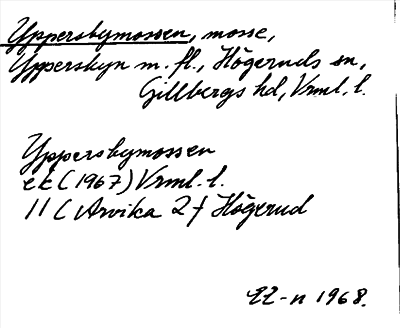 Yppersbymossen, mosse,
Yppersbyn m. fl., Högeruds sn,
Gillbergs hd, Vrml. l.
Yppersbymossen
ek (1967) Vrml. l.
11 C Arvika 2 f Högerud
1968.